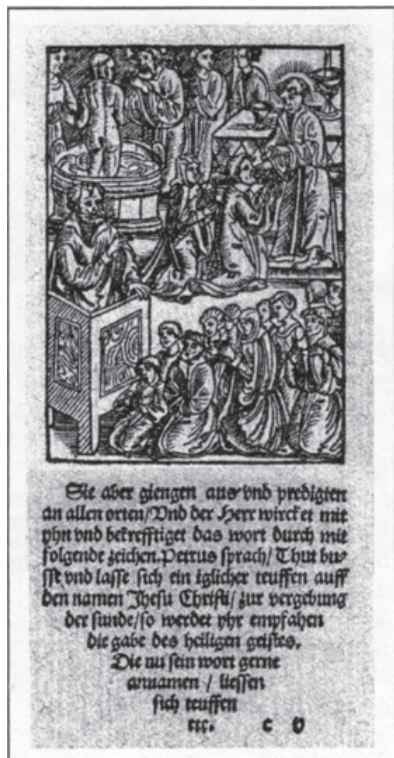 Sie aber giengen aus vnd predigten
an allen orten/Vnd der Herr wircket mit
yhn vnd bekrefftiget das wort durch mit
folgende zeichen. Petrus sprach/Thut bu-
sse vnd lasse sich ein iglicher teuffen auff
den namen Jhesu Christi/zur vergebung
der sunde/so werdet yhr empfahen
die gabe des heiligen geistes.
Die nu sein wort gerne
annamen / liessen
sich teuffen
etc. c v